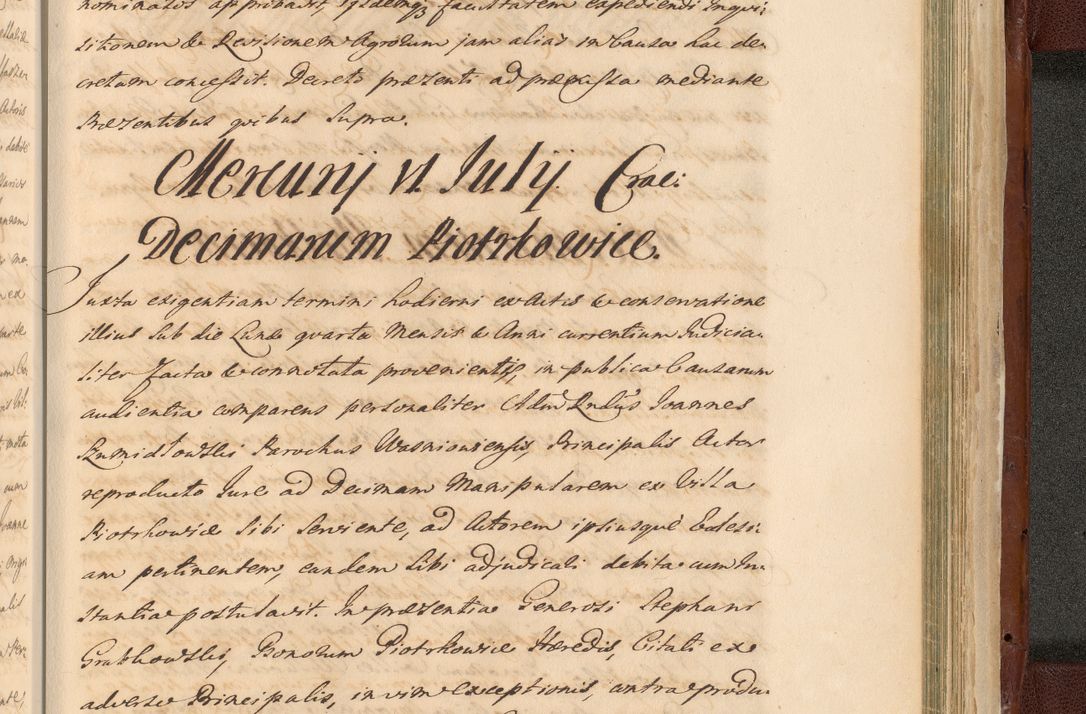 nominatos approbavit, ejusdemq; facultatem expediendi Inqvi:
sitionem & Revisionem Agrorum jam alias in Causa hac de:
cretam concessit. Decreti præzenti ad præmissa mediante
Præzentibus qvibus Supra.
Mercurij VI Julij. Crac:
Decimarum Piotrkowice.
Juxta exigentiam termini hodierni ex Actis & conservatione
illius Sub die Lunæ qvarta Mensis & Anni currentium Judicia:
liter facta & connotata provenientis, in publica Causarum
audientia comparens personaliter Adm Rndus Joannes
Szmidlowski Parochus Wasniowiensis, Principalis Actor
reproducto Jure ad Decimam Manipularem ex Villa
Piotrkowice Sibi Serviente, ad Actorem ipsiusqve Eclesi:
am pertinentem, eandem Sibi adjudicali debita cum In:
stantia postulavit. In præzentia Generosi Stephani
Grabkowski, Bonorum Piotrkowice Hæredis, Citati ex
adverso Principalis, in vim exceptionis, contra produ: